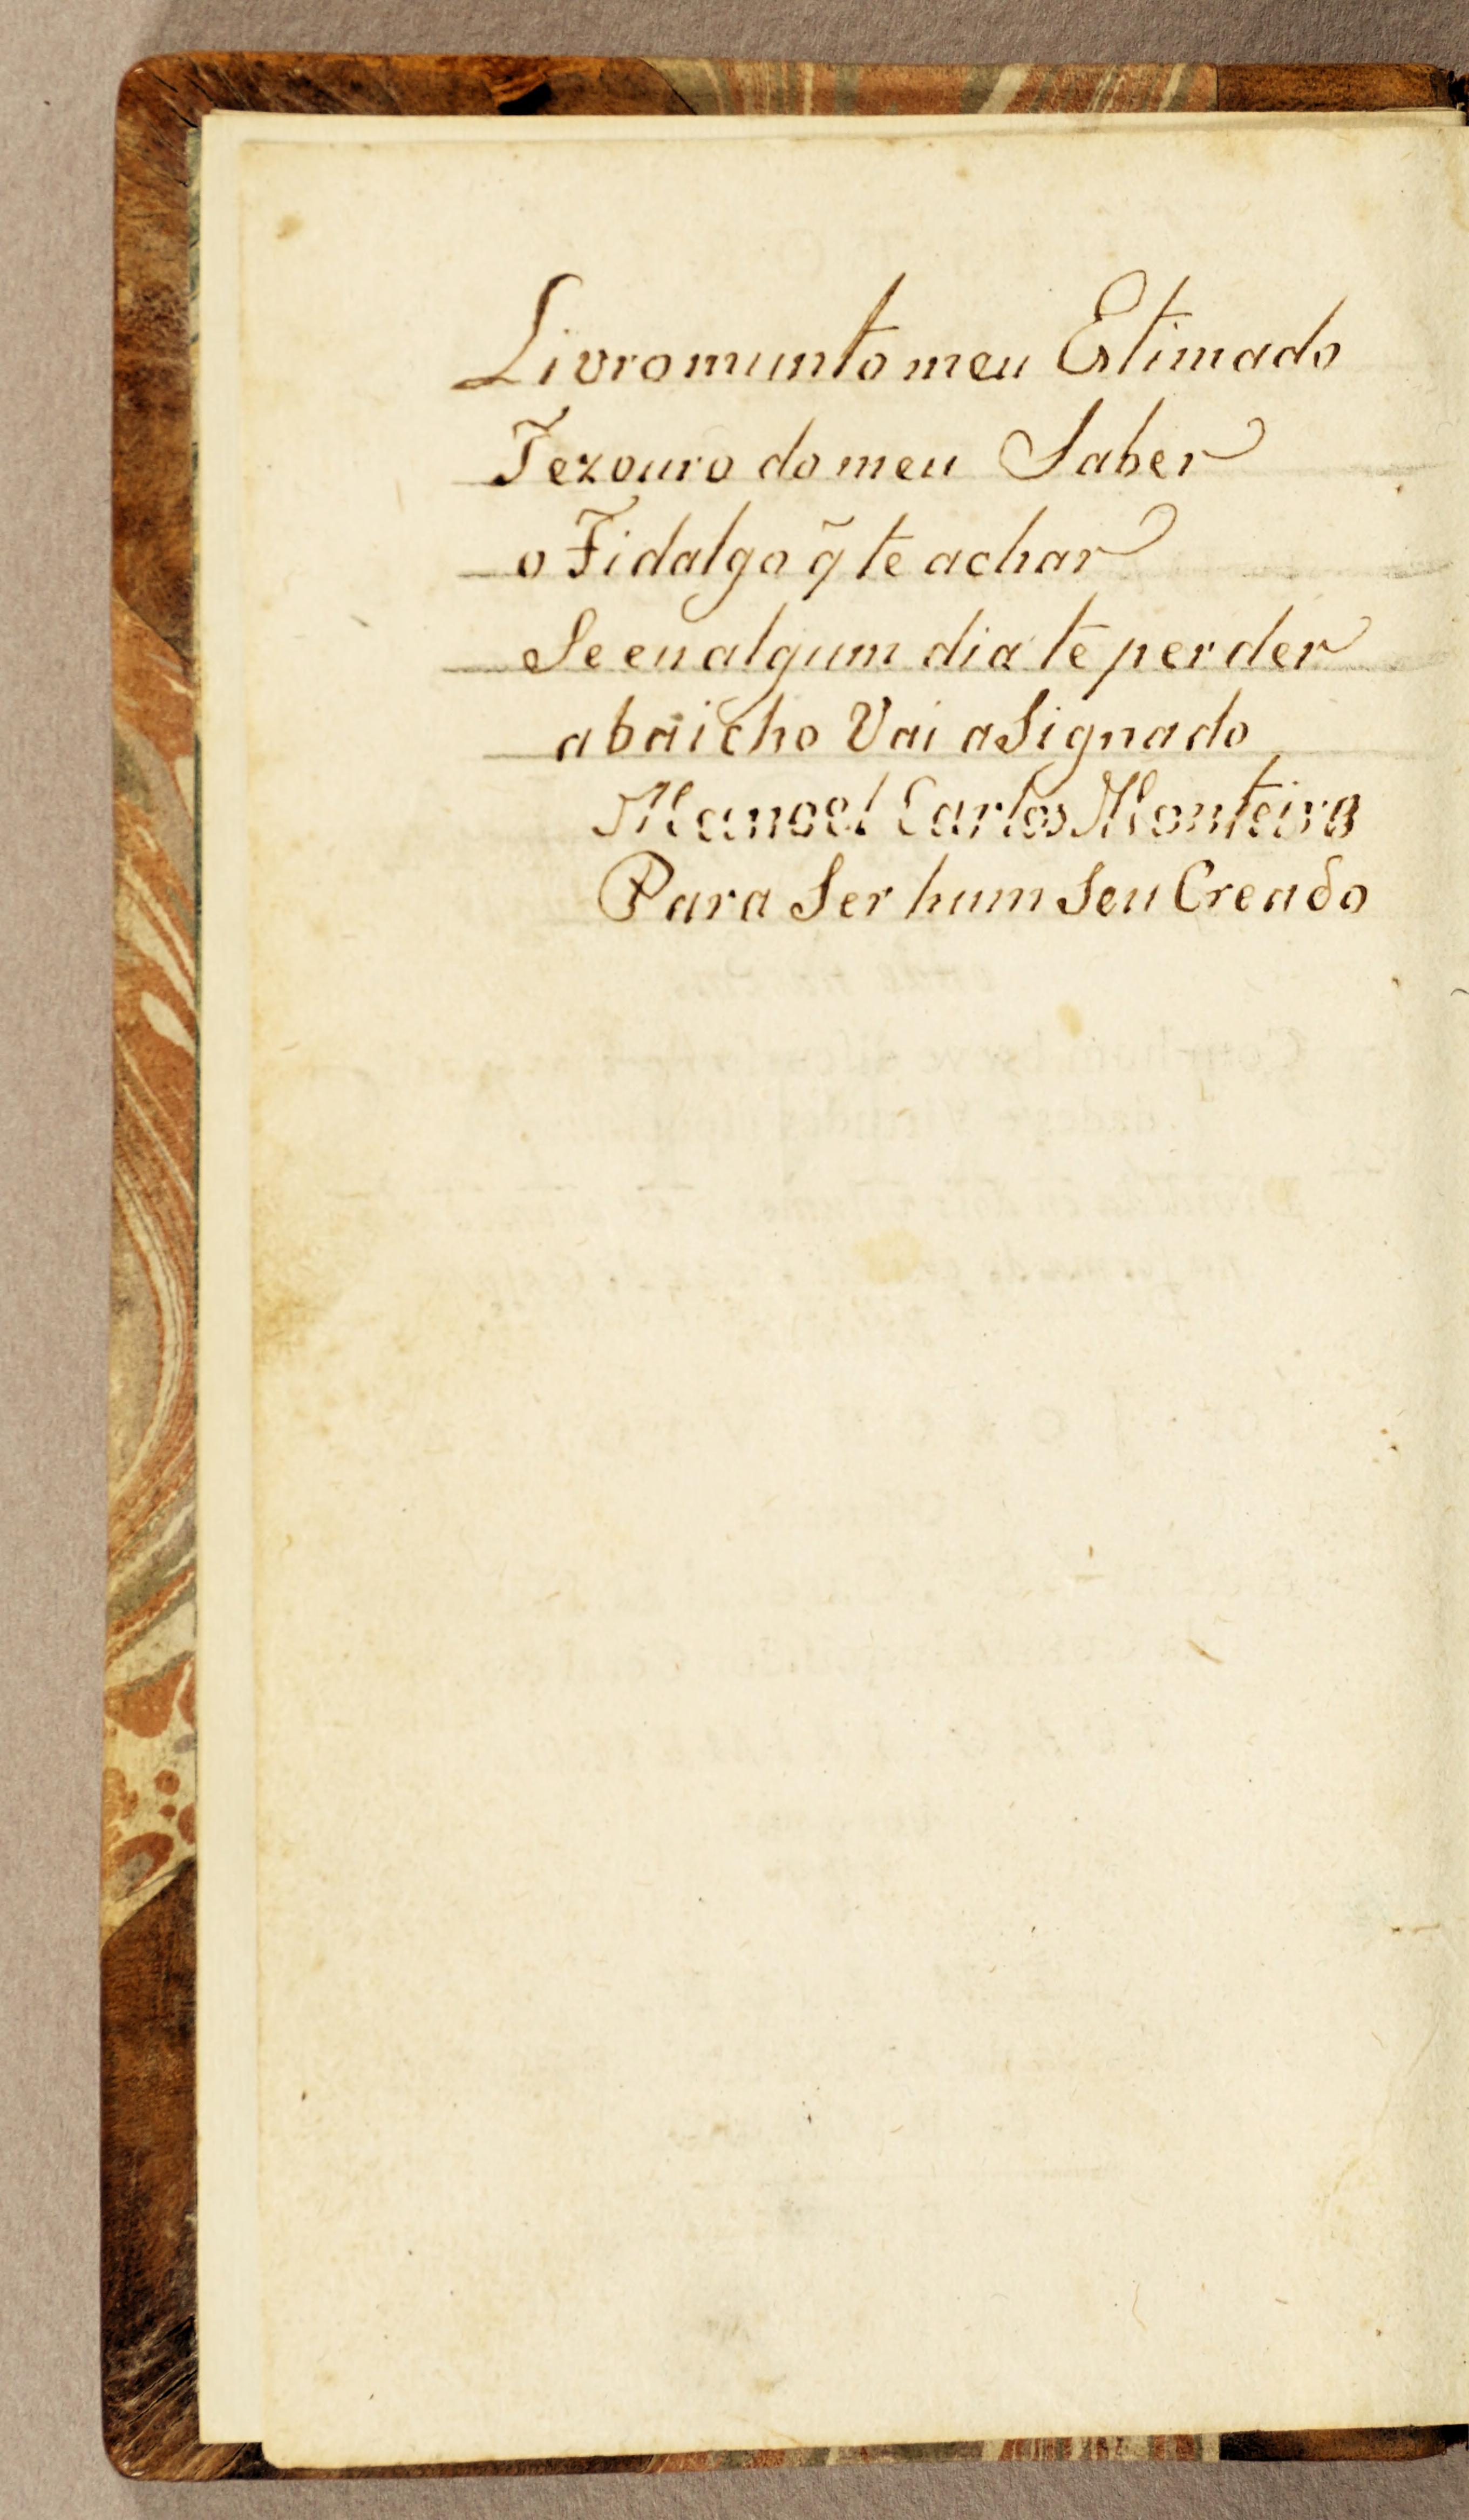 Livro munto meu Estimado
Tezouro do meu Saber
o Fidalgo q̃ te achar
Se eu algum dia te perder
abaicho Vai aSignado
Manoel Carlos Monteiro
Para Ser hum Seu Creado